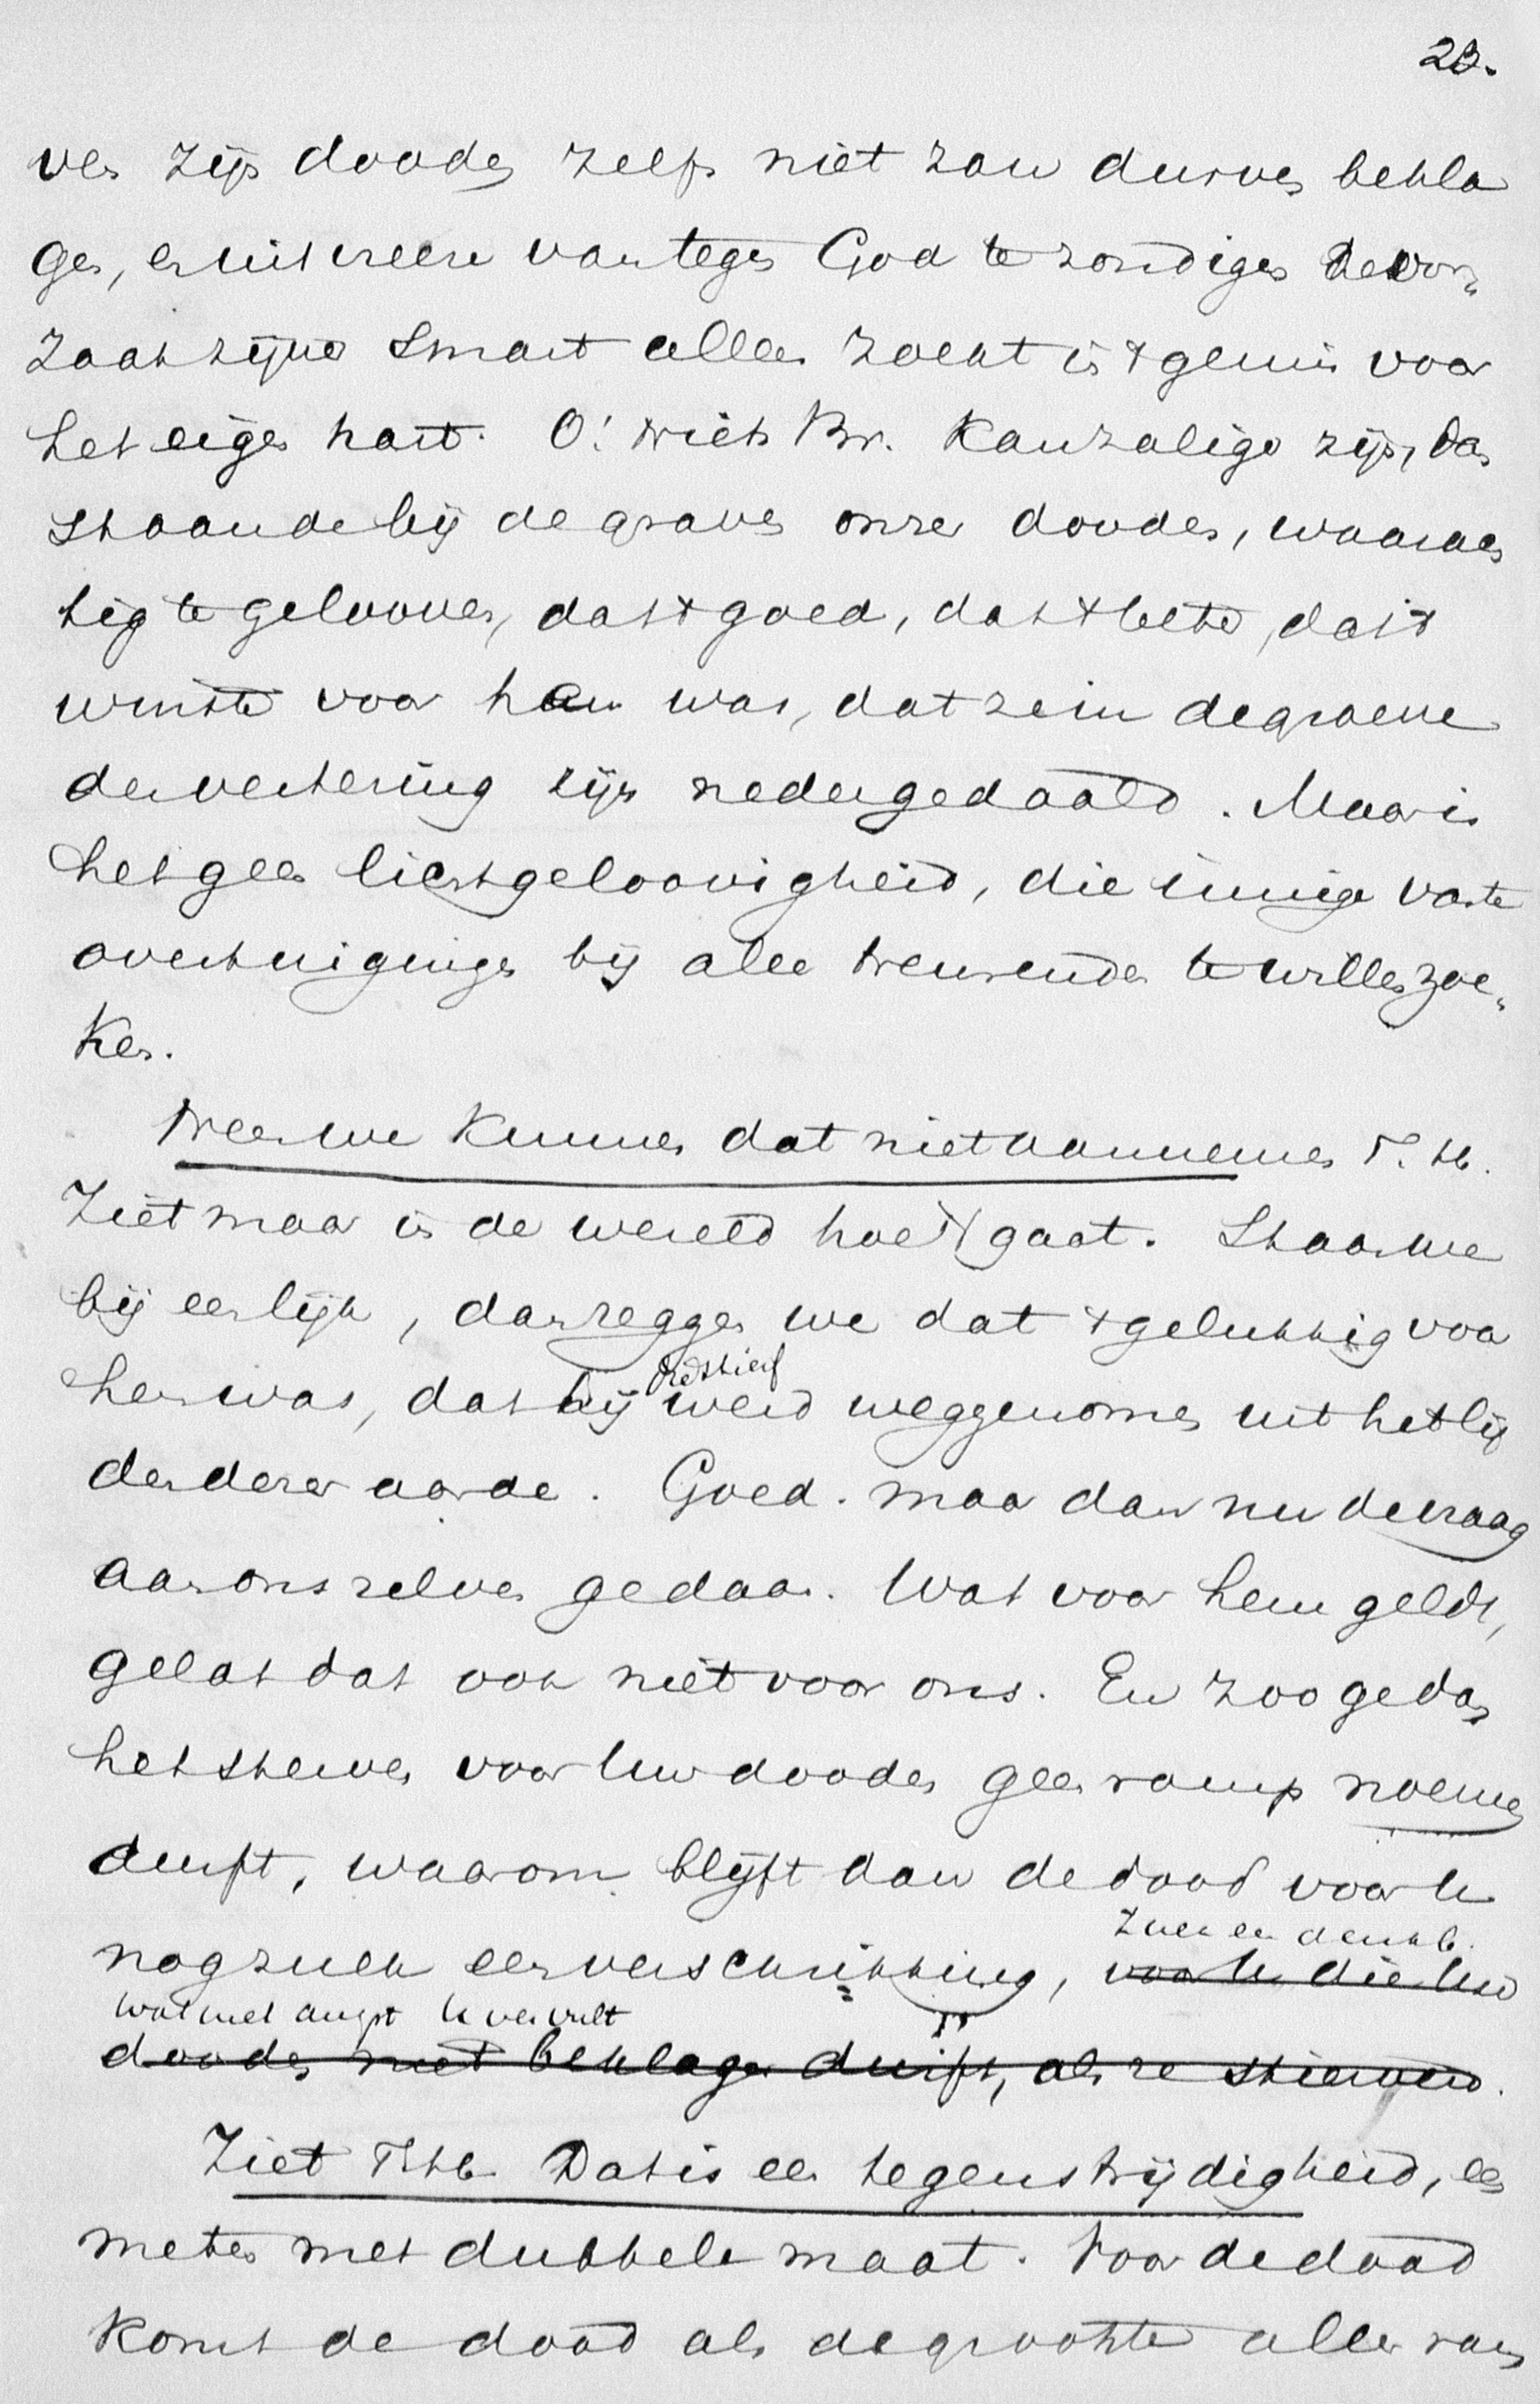 23.
ven zijn dooden zelfs niet zou durven bekla
gen, en uit vreeze van tegen God te zondigen de oor„
zaak zijner smart alleen zoekt in 't gemis voor
het eigen hart. O! niets Br. kan zaliger zijn, dan
staande bij de graven onzer dooden, waarach
tig te gelooven, dat 't goed, dat 't beter, dat 't
winste voor hen was, dat ze in de groeve
der vertering zijn nedergedaald. Maar is
het geen lichtgeloovigheid, die innige vaste
overtuiging bij alle treurenden te willen zoe„
ken.
Neen we kunnen dat niet aannemen T. H.
Ziet maar in de wereld hoe 't gaat. Staan we
bij een lijk, dan zeggen we dat 't gelukkig voor
hen was, dat hij stierf
werd weggenomen uit het lij
den dezer aarde. Goed. maar dan nu de vraag
aan ons zelven gedaan. Wat voor hem geldt,
geldt dat ook niet voor ons. En zoo ge dan
het sterven voor Uw dooden geen ramp noemen
durft, waarom blijft dan de dood voor U
nog zulk een verschrikking, voor U die Uw
zulk een denkb.
wat met angst U vervult
dooden niet beklagen durft, als ze stierven.
Ziet T. H. Dat is een tegenstrijdigheid, een
meten met dubbele maat. Voor de dood
komt de dood als de grootste aller ram